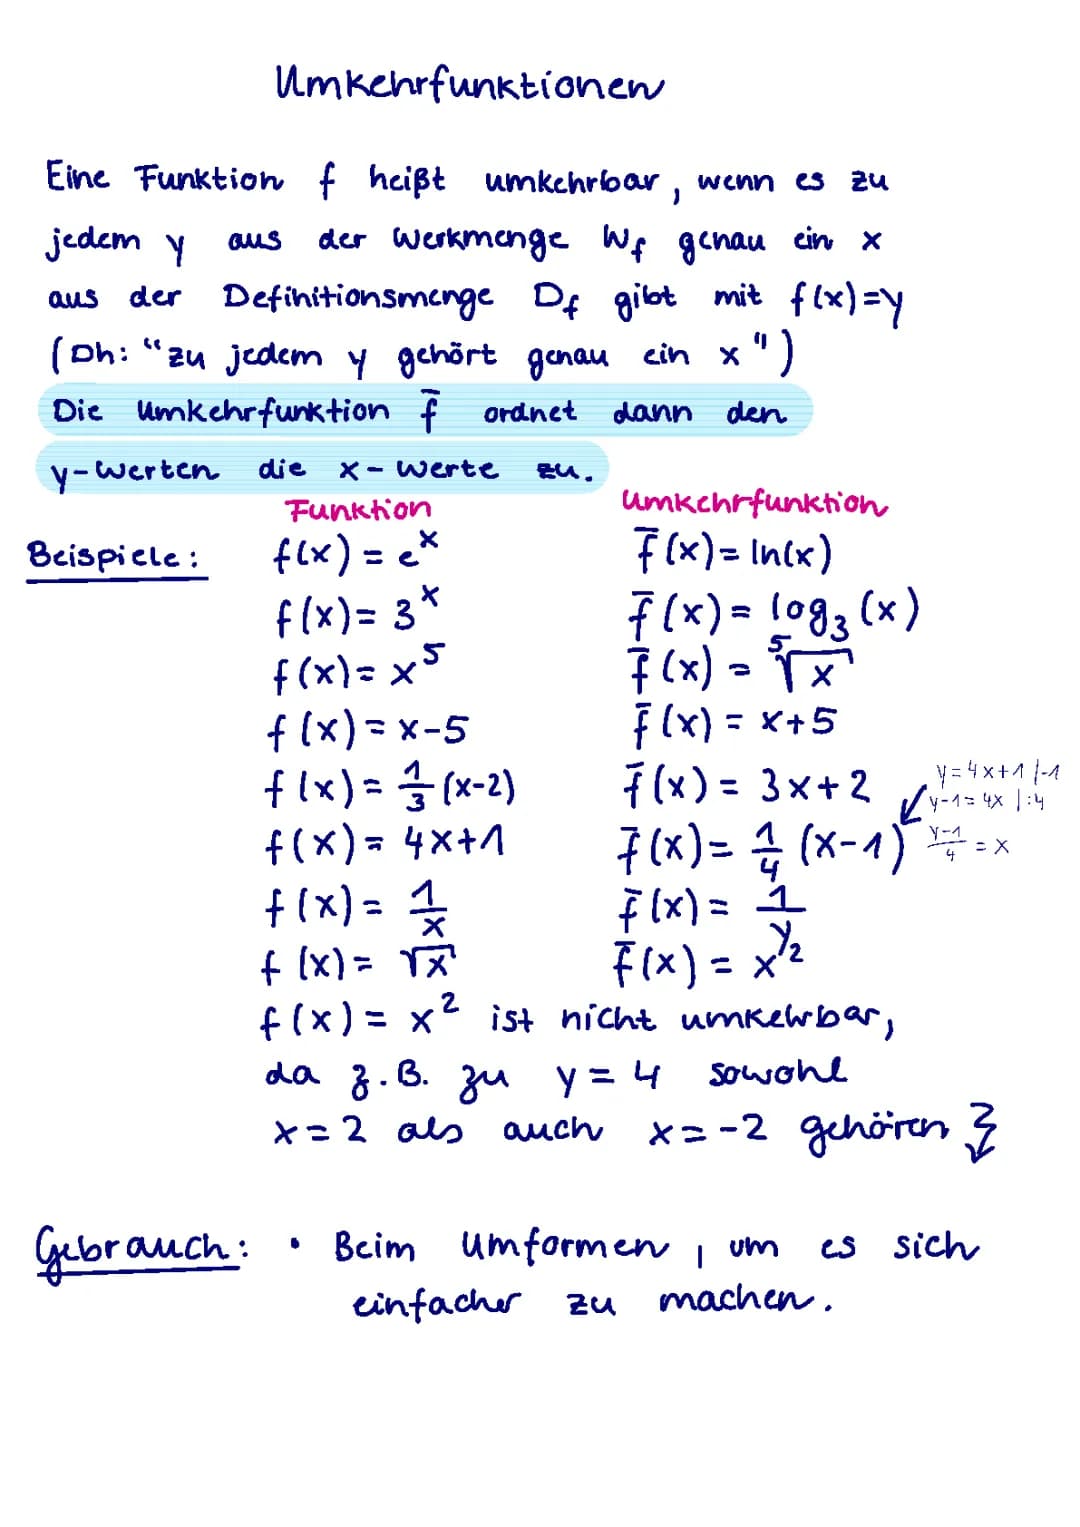 Umkehrfunktionen
Eine Funktion f heißt umkehrbar, wenn es zu
jedem y aus der Werkmenge W_f genau ein x
aus der Definitionsmenge D_f gibt mit f(x)=y
(Dh: "zu jedem y gehört genau ein x")
Die Umkehrfunktion f̄ ordnet dann den
y-Werten die x-Werte zu.
Funktion Umkehrfunktion
Beispiele: f(x) = e^x f̄(x) = ln(x)
f(x) = 3^x f̄(x) = log₃(x)
f(x) = x^5 f̄(x) = ⁵√x
f(x) = x-5 f̄(x) = x+5
f(x) = 1/3 (x-2) f̄(x) = 3x+2
y=4x+1 |-1
y-1=4x |:4
f(x) = 4x+1 f̄(x) = 1/4 (x-1) y-1/4 = x
f(x) = 1/x f̄(x) = 1/y
f(x) = √x f̄(x) = x^/2
f(x) = x² ist nicht umkehrbar,
da z.B. zu y=4 sowohl
x=2 als auch x=-2 gehören
Gebrauch: • Beim Umformen, um es sich
einfacher zu machen.